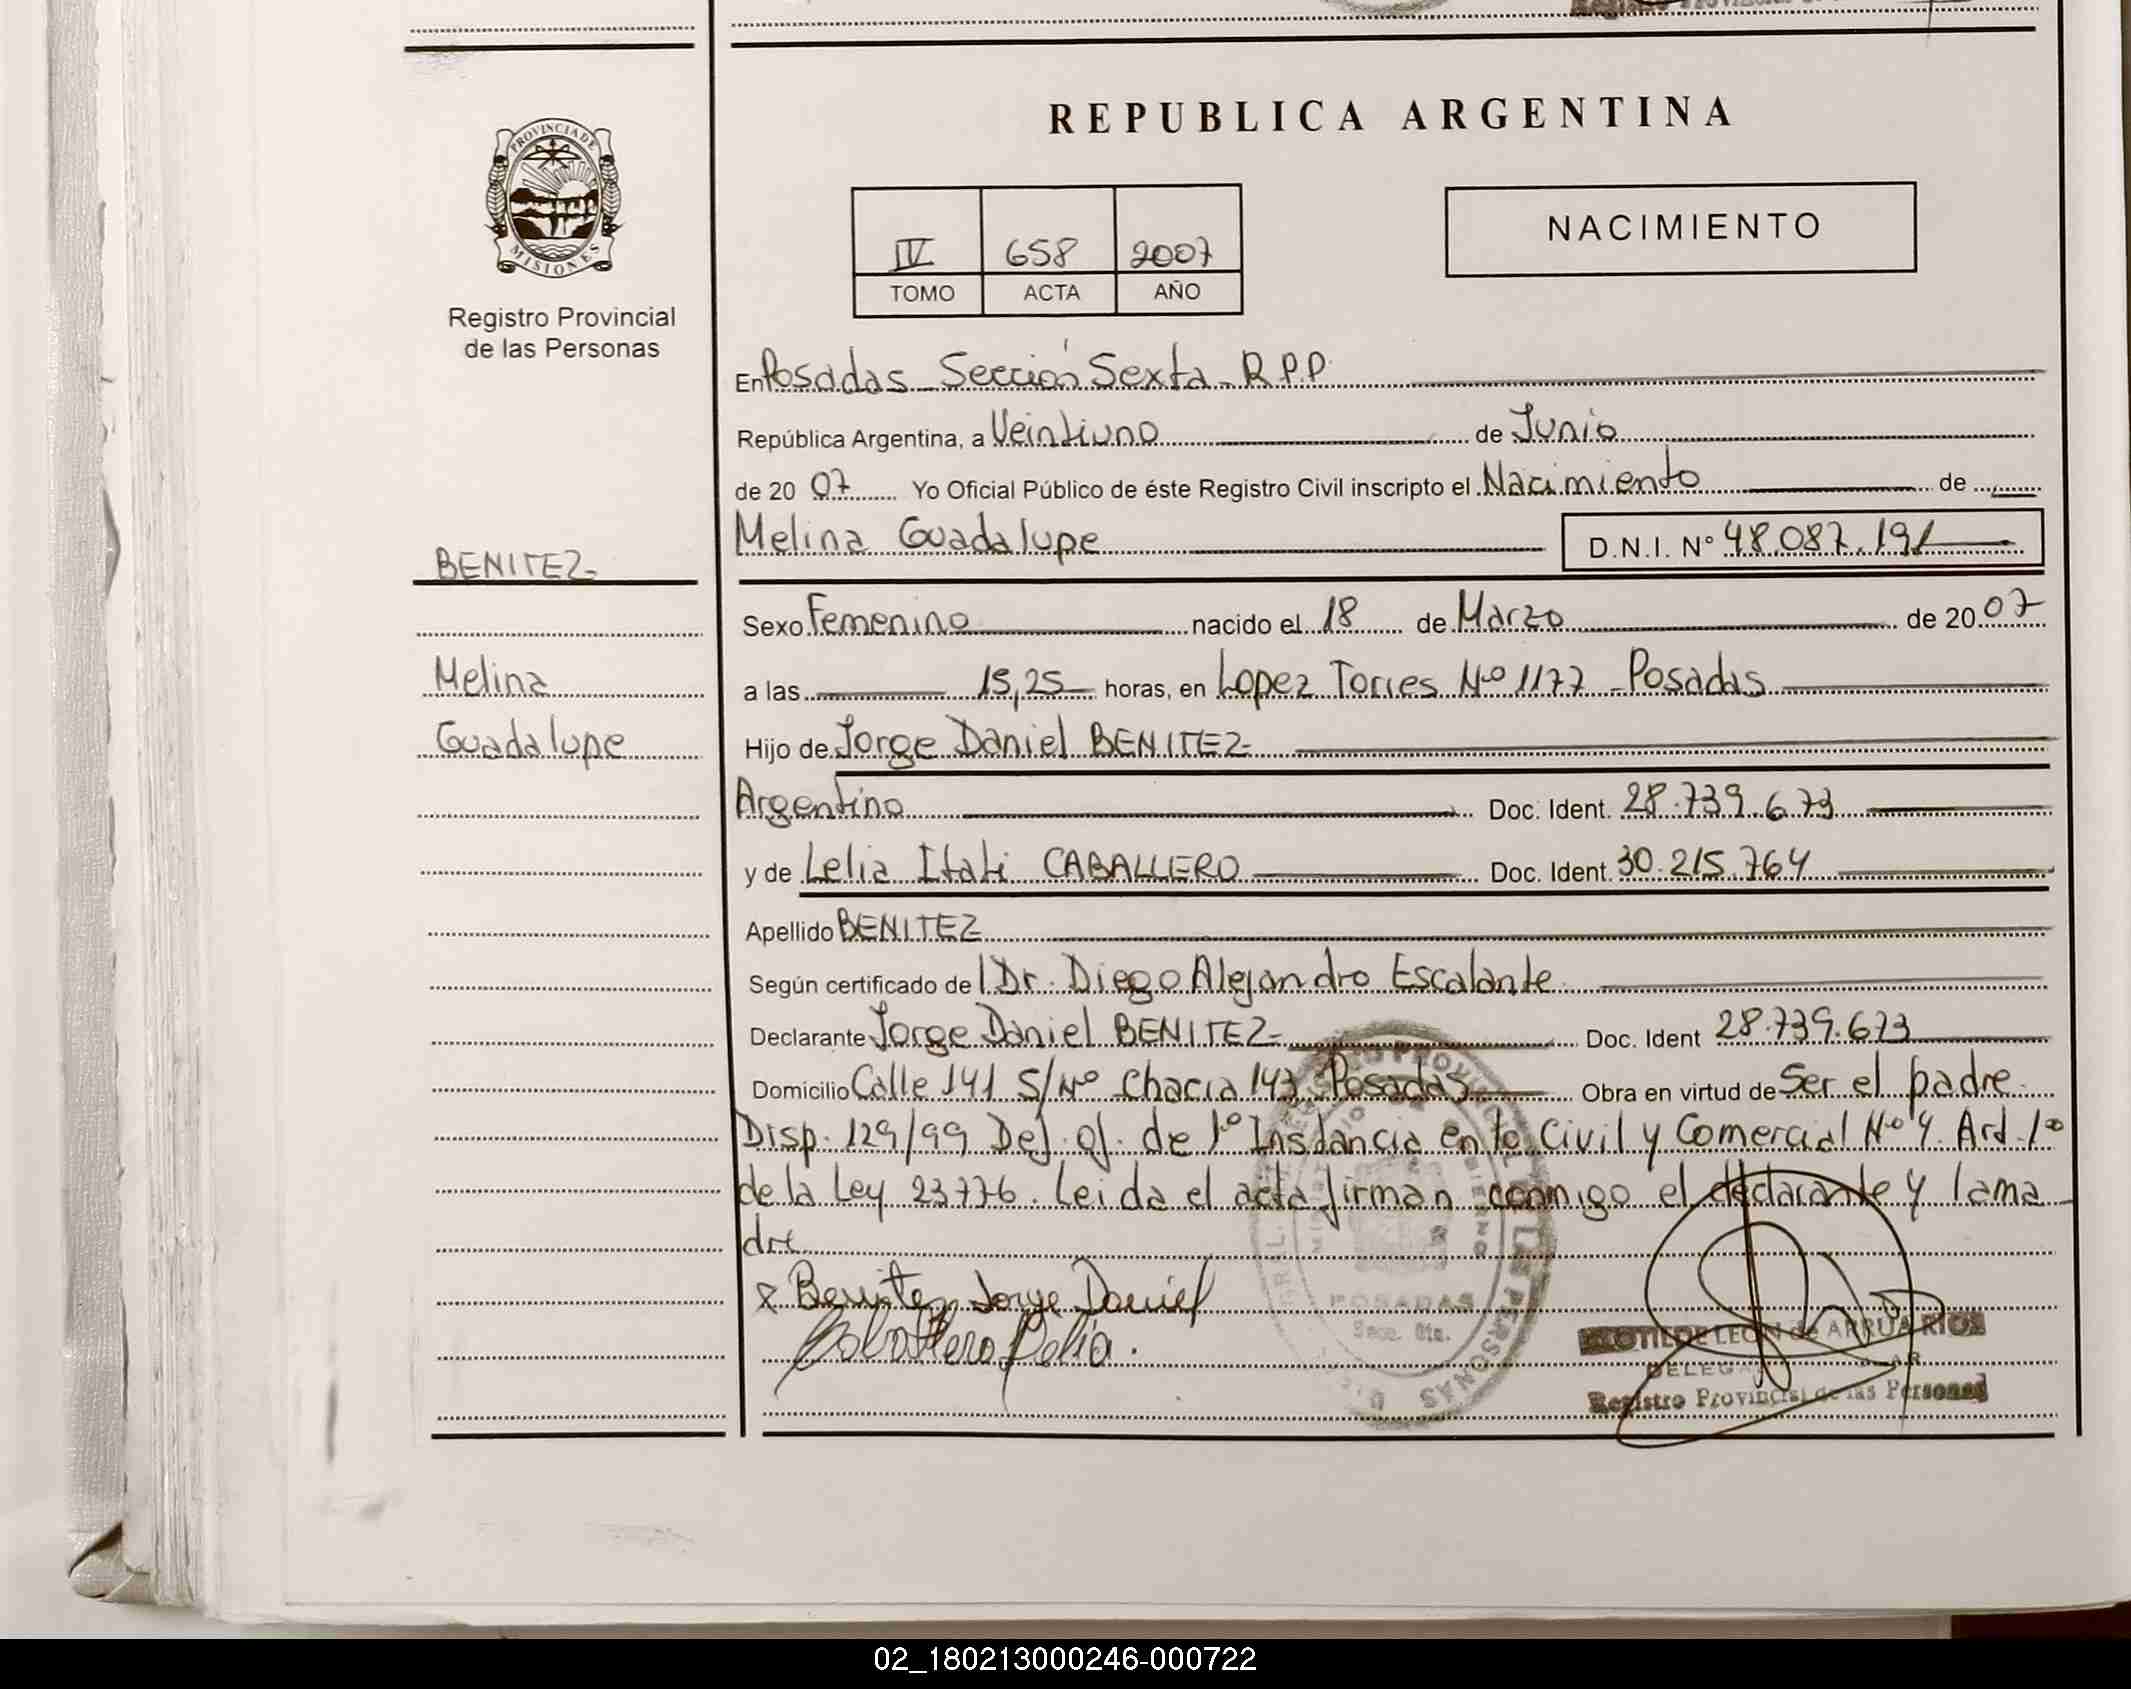 REPUBLICA ARGENTINA
PROVINCIA DE
MISIONES
Registro Provincial
de las Personas
IV 658 2007
TOMO ACTA AÑO
NACIMIENTO
En Posadas Sección Sexta R.P.P.
República Argentina, a Veintiuno de Junio
de 20 07 Yo Oficial Público de éste Registro Civil inscripto el Nacimiento de
Melina Guadalupe D.N.I. N° 48.087.191
BENITEZ
Melina
Guadalupe
Sexo Femenino nacido el 18 de Marzo de 20 07
a las 15,25 horas, en Lopez Torres Nº 1177 Posadas
Hijo de Jorge Daniel BENITEZ
Argentino Doc. Ident. 28.739.673
y de Lelia Itati CABALLERO Doc. Ident. 30.215.764
Apellido BENITEZ
Según certificado de l Dr. Diego Alejandro Escalante
Declarante Jorge Daniel BENITEZ Doc. Ident 28.739.673
Domicilio Calle 141 S/Nº Chacra 143 Posadas Obra en virtud de Ser el padre
Disp. 129/99 Def. Of. de 1º Instancia en lo Civil y Comercial Nº 4. Art. 1º
de la Ley 23776. Leida el acta firman conmigo el declarante y la ma
dre
x Benitez Jorge Daniel
Caballero Lelia.
POSADAS
Secc. 6ta.
LEON de ARRUA RIOS
Registro Provincial de las Personas
02_180213000246-000722